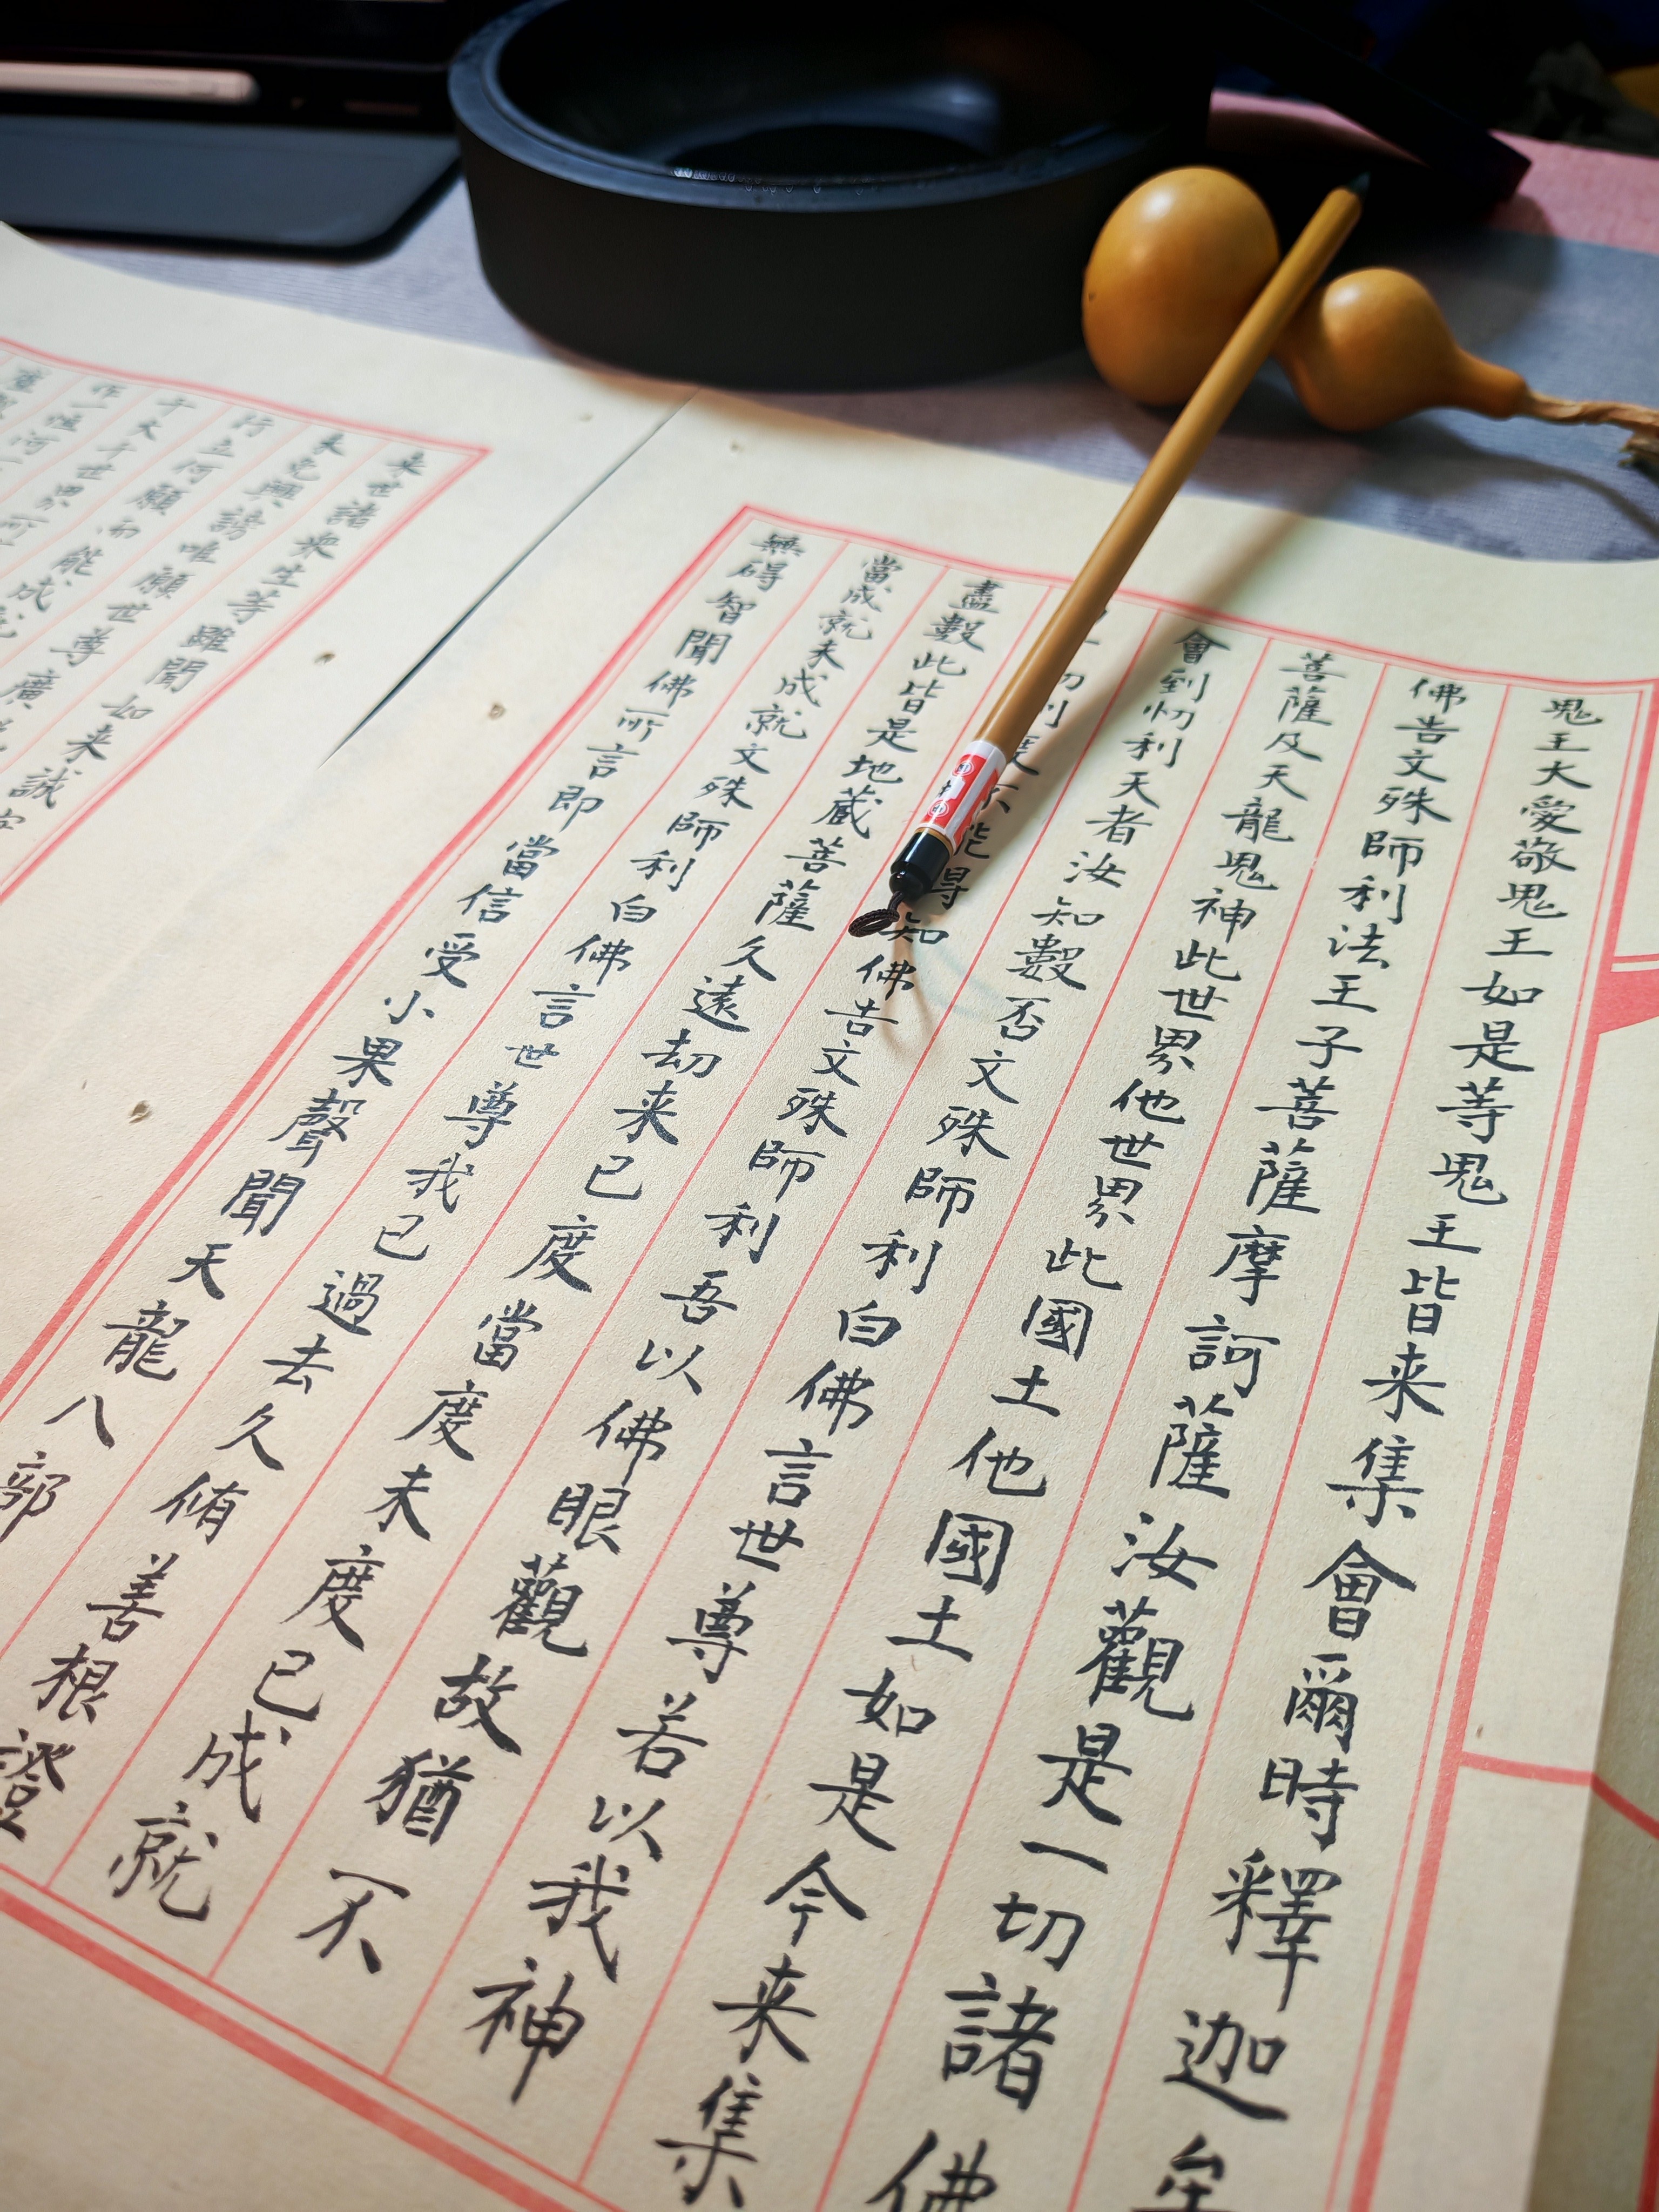 鬼王大愛敬鬼王如是等鬼王皆来集會爾時釋迦牟
佛告文殊師利法王子菩薩摩訶薩汝觀是一切諸佛
菩薩及天龍鬼神此世界他世界此國土他國土如是今来集
會到忉利天者汝知數否文殊師利白佛言世尊若以我神
度不能得知佛告文殊師利吾以佛眼觀故猶不
盡數此皆是地蔵菩薩久遠劫来已度當度未度已成就
當成就未成就文殊師利白佛言世尊我已過去久脩善根證
無碍智聞佛所言即當信受小果聲聞天龍八部
来世諸衆生等雖聞如来誠
未免興謗唯願世尊廣
行立何願而能成
千大千世界所
作一恒河